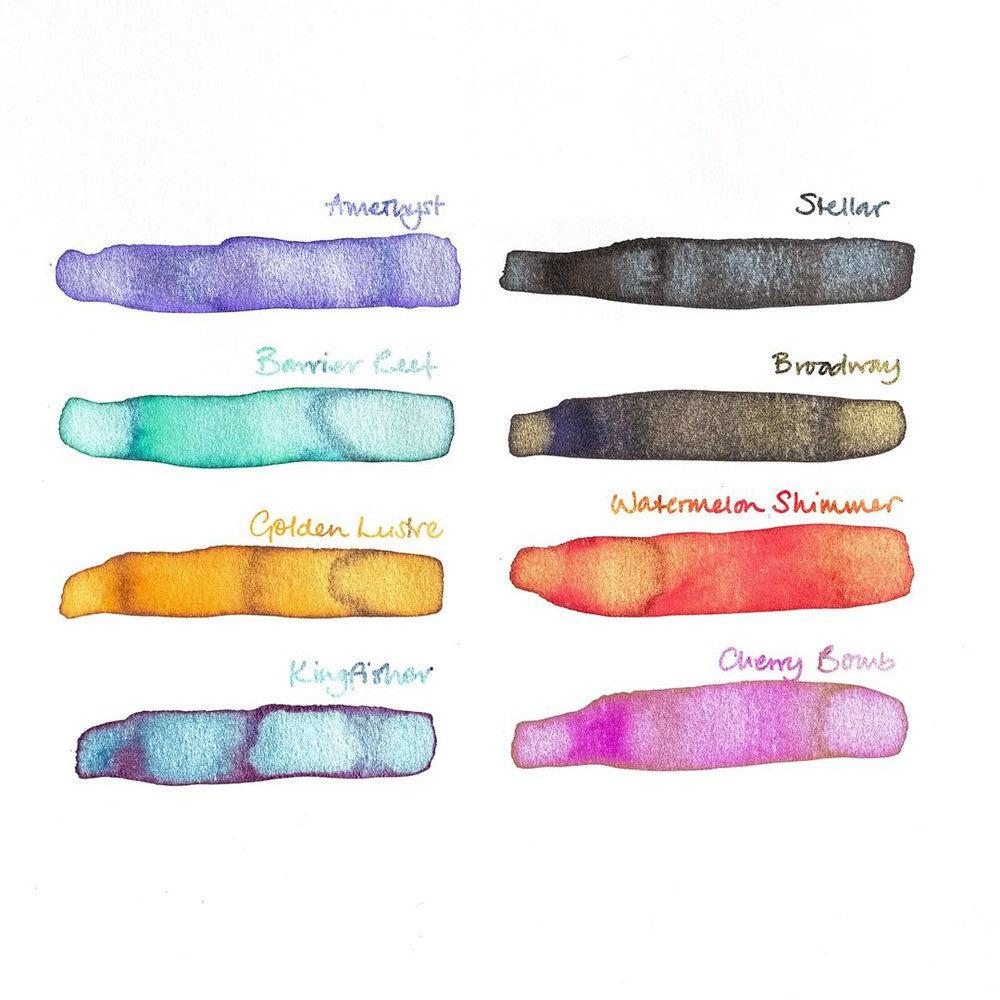 Amethyst
Stellar
Barrier Reef
Broadway
Golden Lustre
Watermelon Shimmer
Kingfisher
Cherry Bomb